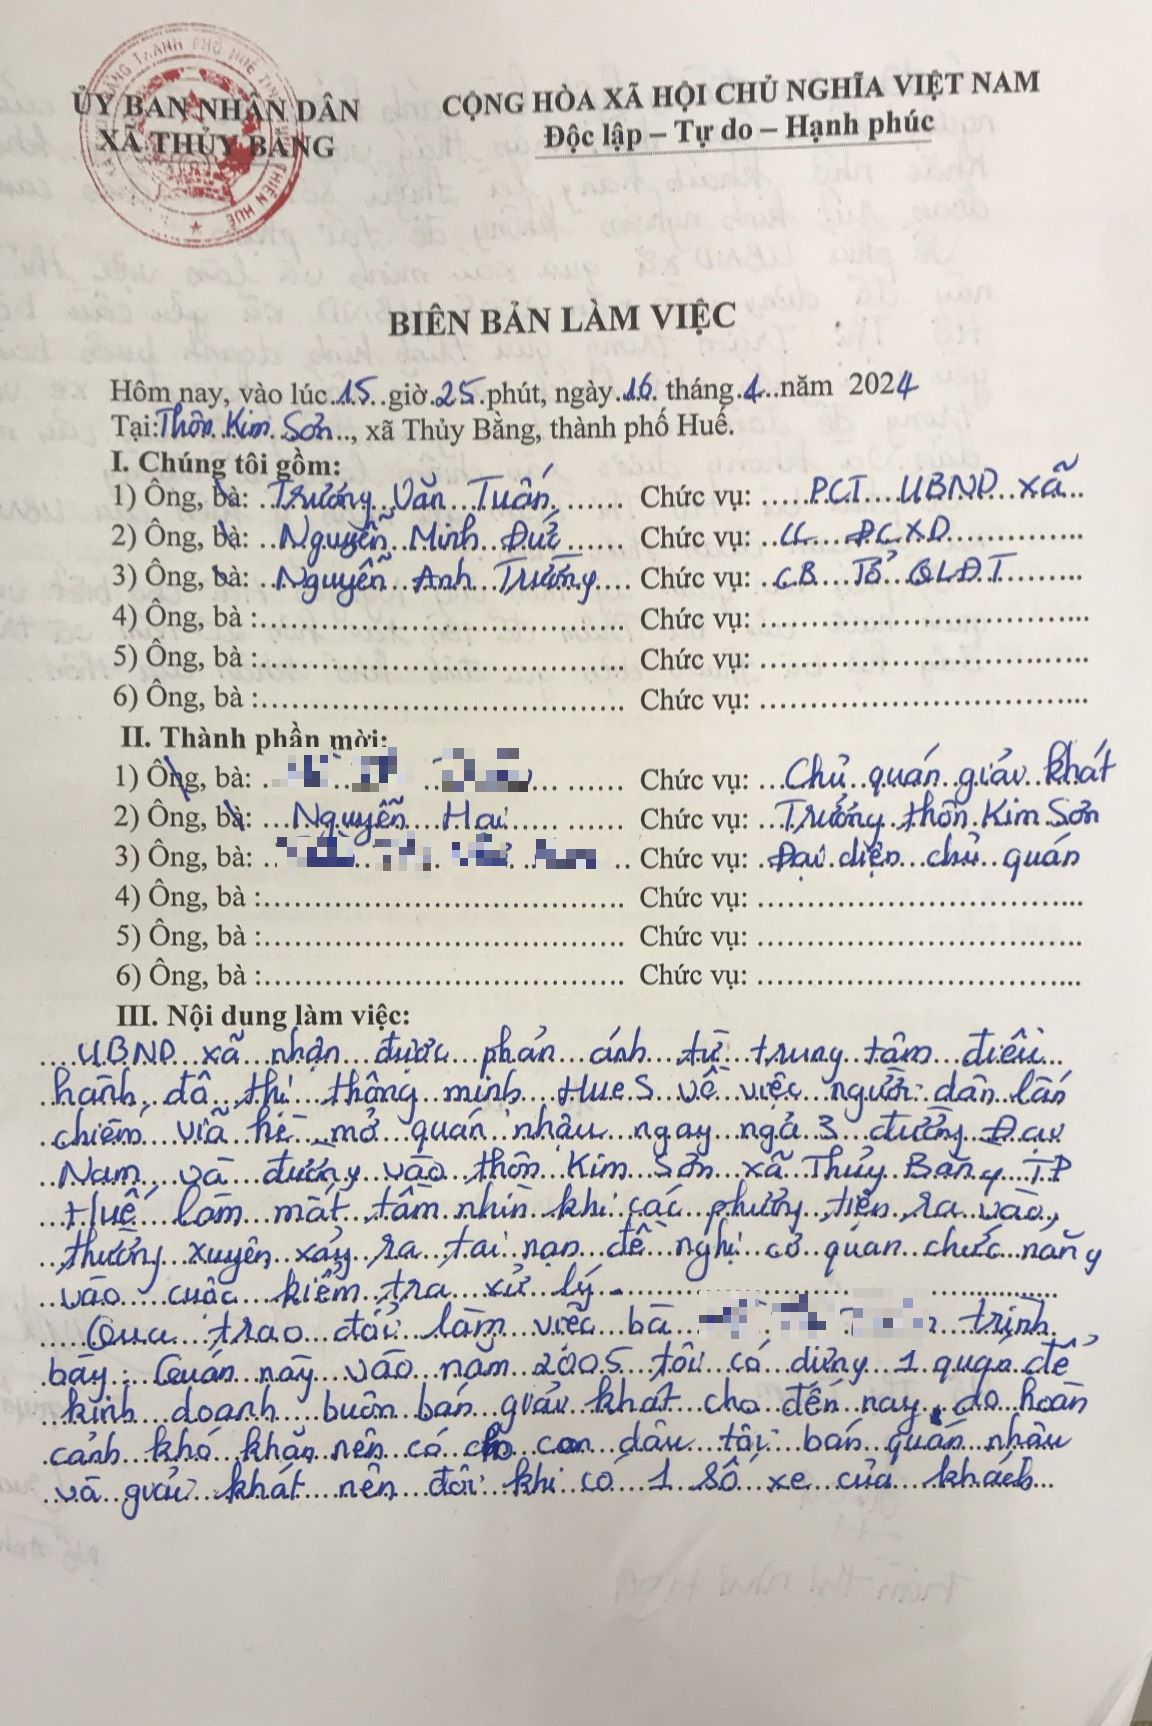 ỦY BAN NHÂN DÂN
XÃ THỦY BẰNG
CỘNG HÒA XÃ HỘI CHỦ NGHĨA VIỆT NAM
Độc lập – Tự do – Hạnh phúc
BIÊN BẢN LÀM VIỆC
Hôm nay, vào lúc 15 giờ 25 phút, ngày 16 tháng 4 năm 2024
Tại: Thôn Kim Sơn, xã Thủy Bằng, thành phố Huế.
I. Chúng tôi gồm:
1) Ông, bà: Trương Văn Tuấn Chức vụ: PCT UBND xã
2) Ông, bà: Nguyễn Minh Đức Chức vụ: CC ĐCXD
3) Ông, bà: Nguyễn Anh Trường Chức vụ: CB Tổ QLĐT
4) Ông, bà : Chức vụ:
5) Ông, bà : Chức vụ:
6) Ông, bà : Chức vụ:
II. Thành phần mời:
1) Ông, bà: Chức vụ: Chủ quán giải khát
2) Ông, bà: Nguyễn Hai Chức vụ: Trưởng thôn Kim Sơn
3) Ông, bà: Chức vụ: Đại diện chủ quán
4) Ông, bà : Chức vụ:
5) Ông, bà : Chức vụ:
6) Ông, bà : Chức vụ:
III. Nội dung làm việc:
UBND xã nhận được phản ánh từ trung tâm điều
hành đô thị thông minh HueS về việc người dân lấn
chiếm vỉa hè mở quán nhậu ngay ngã 3 đường Đại
Nam và đường vào thôn Kim Sơn xã Thủy Bằng TP
Huế làm mất tầm nhìn khi các phương tiện ra vào,
thường xuyên xảy ra tai nạn đề nghị cơ quan chức năng
vào cuộc kiểm tra xử lý
Qua trao đổi làm việc bà trình
bày: Quán này vào năm 2005 tôi có dựng 1 quán để
kinh doanh buôn bán giải khát cho đến nay, do hoàn
cảnh khó khăn nên có cho con dâu tôi bán quán nhậu
và giải khát nên đôi khi có 1 số xe của khách